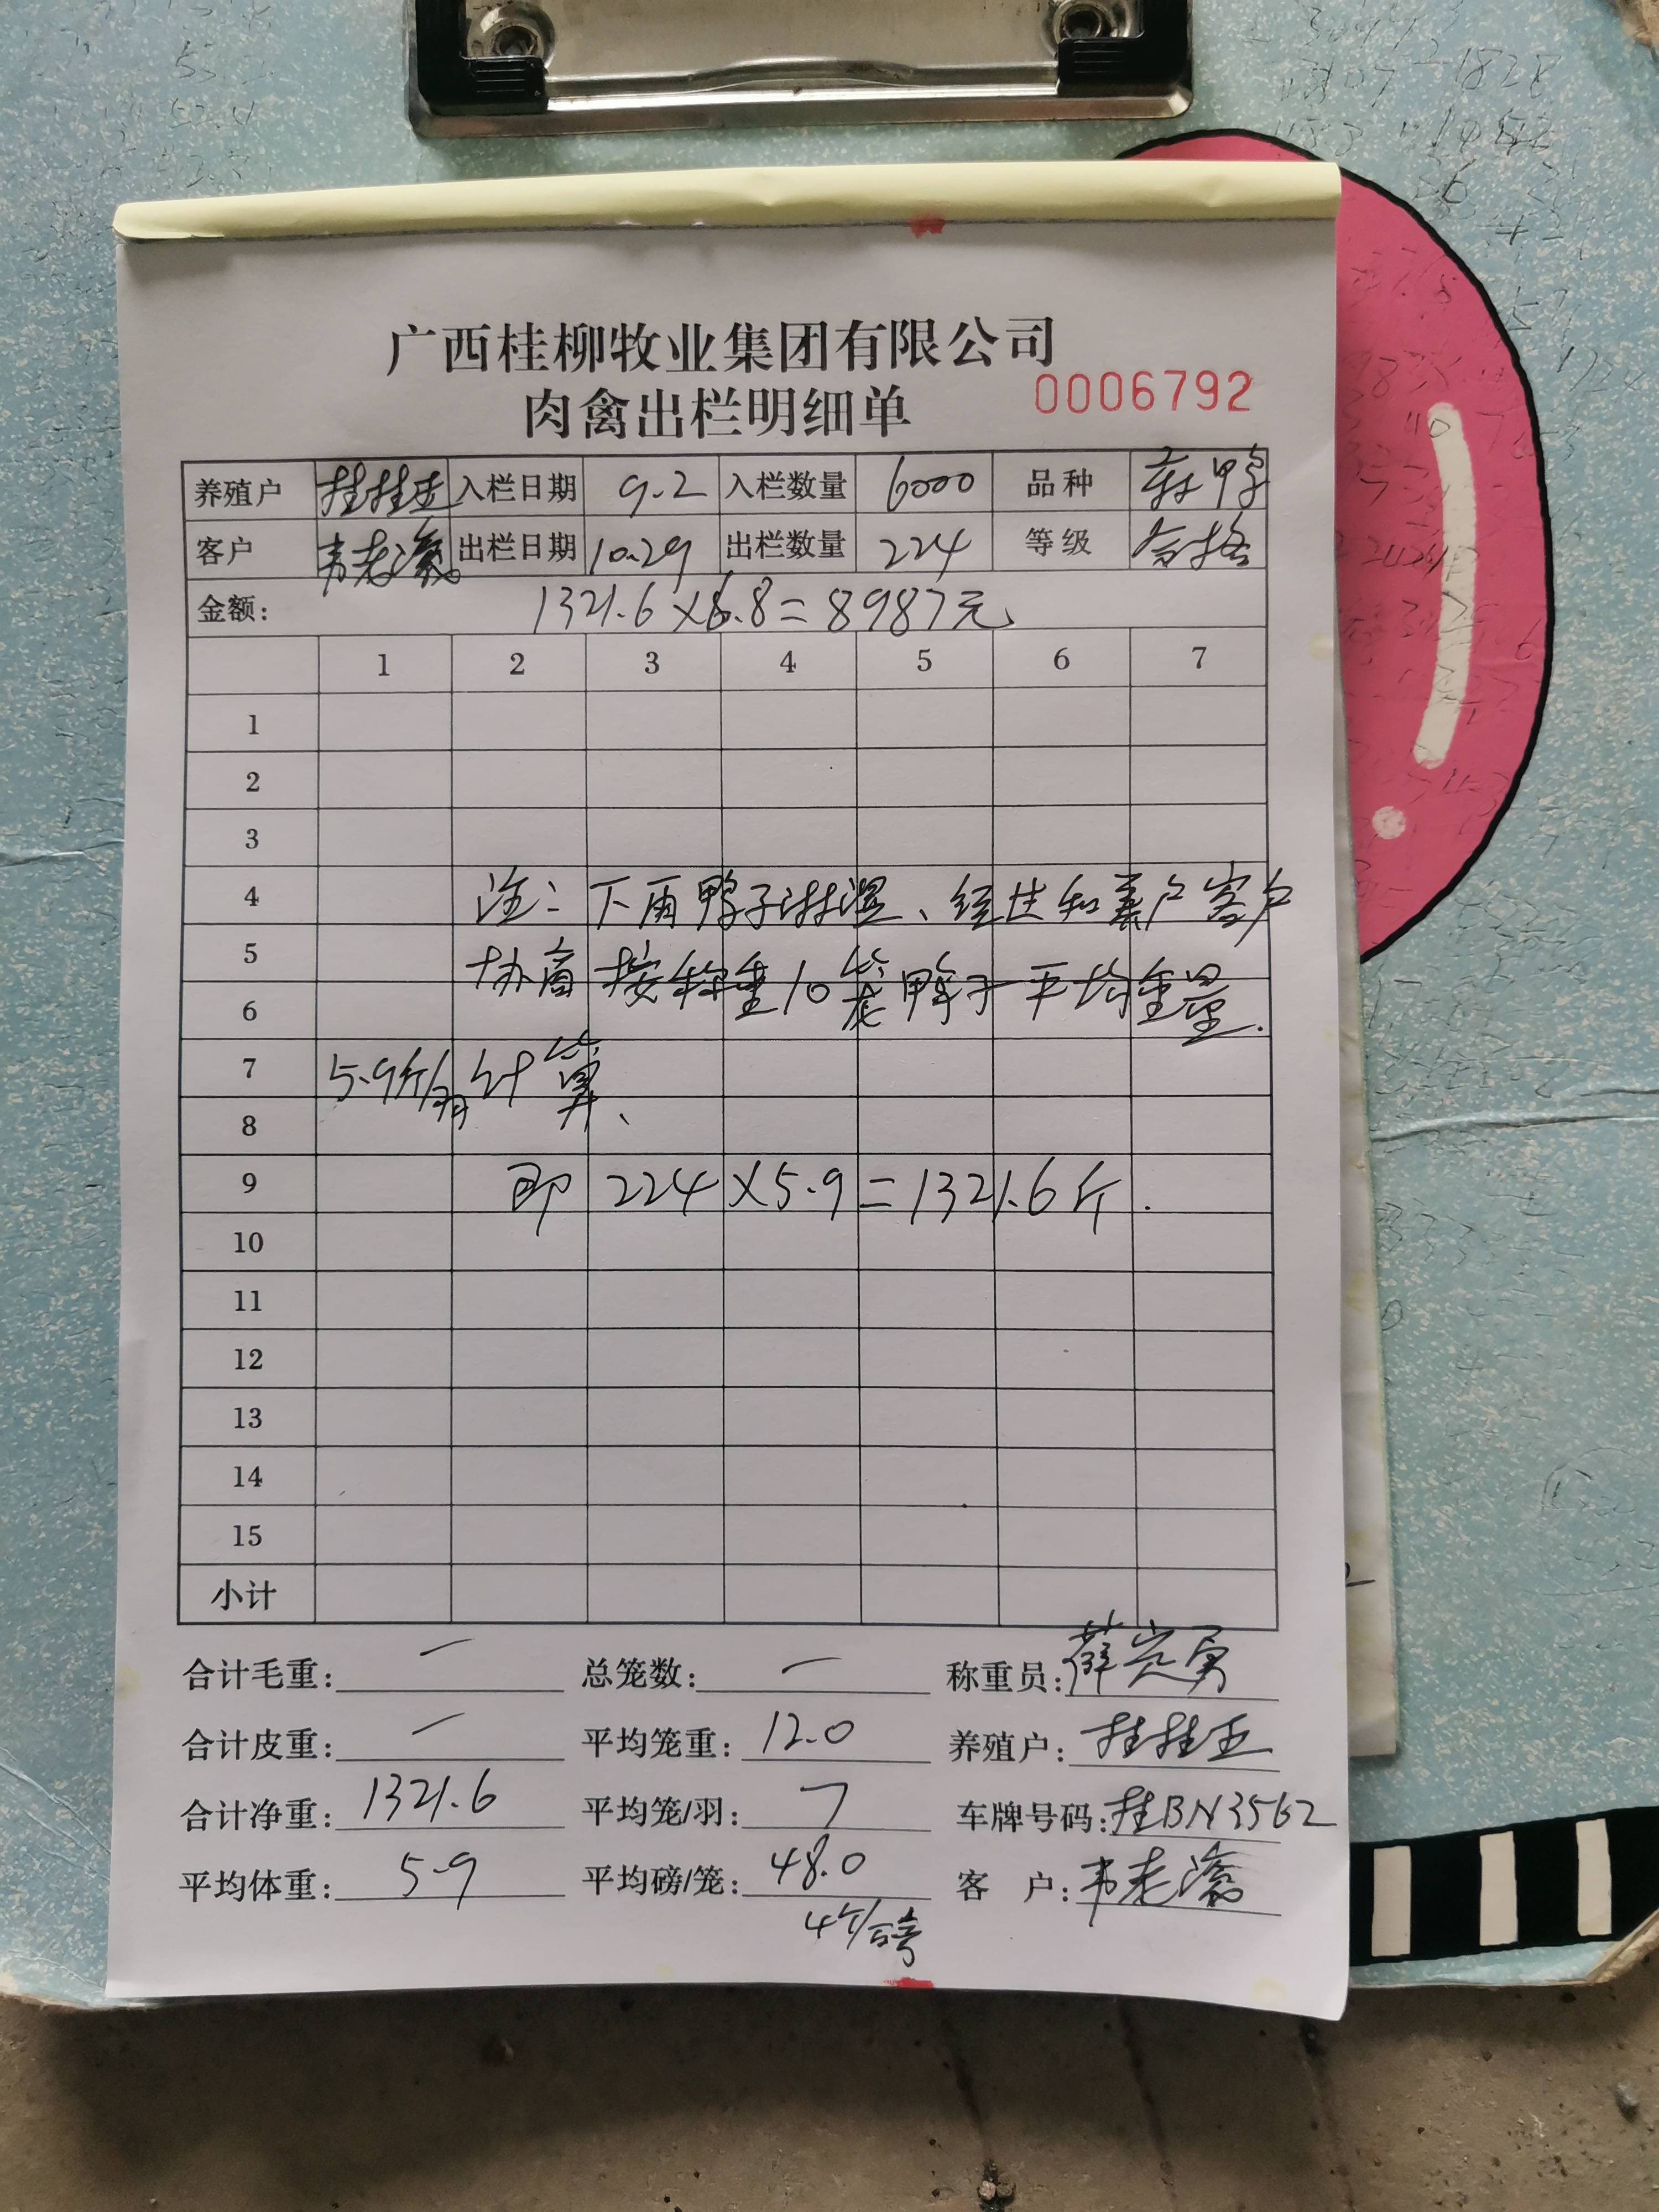 广西桂柳牧业集团有限公司
肉禽出栏明细单 0006792
养殖户 桂桂玉 入栏日期 9.2 入栏数量 6000 品种 鸭
客户 韦老 出栏日期 10.29 出栏数量 224 等级 合格
金额: 1321.6×6.8=8987元
1 2 3 4 5 6 7
1
2
3
4 注:下雨鸭子淋湿、经过和养户客户
5 协商按称重10笼鸭子平均重量.
6
7 5.9斤/羽计算、
8
9 即224×5.9=1321.6斤.
10
11
12
13
14
15
小计
合计毛重: 一 总笼数: 一 称重员: 薛光勇
合计皮重: 一 平均笼重: 12.0 养殖户: 桂桂玉
合计净重: 1321.6 平均笼/羽: 7 车牌号码: 桂BN3562
平均体重: 5.9 平均磅/笼: 48.0 客 户: 韦老
4个/磅